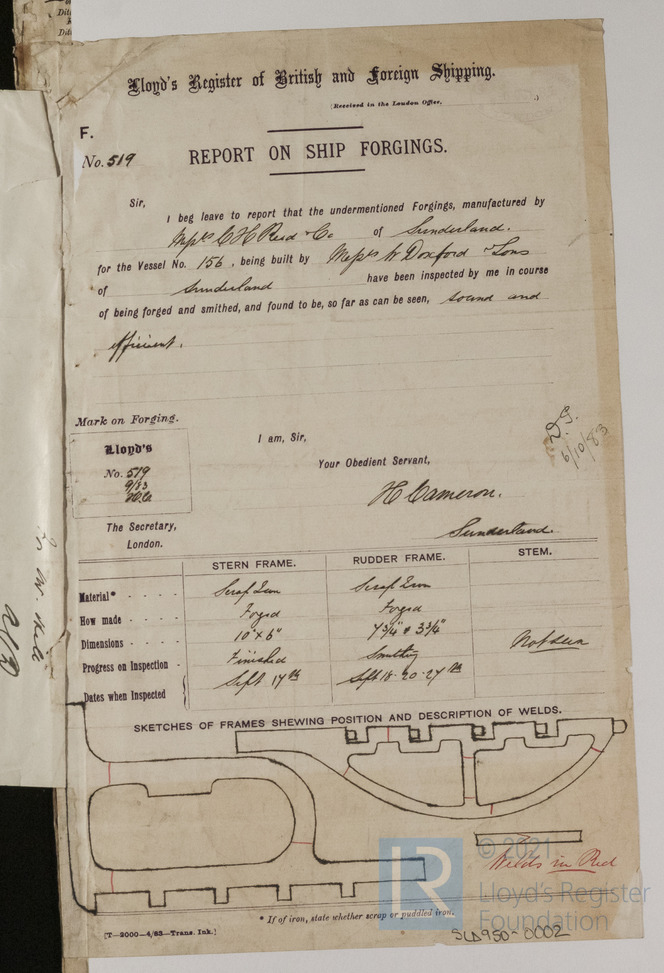 Lloyd's Register of British and Foreign Shipping.
(Received in the London Office, .)
F.
No. 519
REPORT ON SHIP FORGINGS.
Sir,
I beg leave to report that the undermentioned Forgings, manufactured by
C H Read & Co of Sunderland.
for the Vessel No. 156, being built by W Doxford & Sons
of Sunderland have been inspected by me in course
of being forged and smithed, and found to be, so far as can be seen, sound and
efficient.
Mark on Forging.
Lloyd's
No. 519
9/83
H.C.
I am, Sir,
Your Obedient Servant,
H Cameron.
Sunderland.
6/10/83
The Secretary,
London.
STERN FRAME. RUDDER FRAME. STEM.
Material* Scrap Iron Scrap Iron
How made Forged Forged
Dimensions 10" x 6" 7 3/4" & 3 3/4" Not seen
Progress on Inspection Finished Smithing
Dates when Inspected Sept 17th Sept 18. 20. 27th
SKETCHES OF FRAMES SHEWING POSITION AND DESCRIPTION OF WELDS.
Welds in Red
© 2021
LR
Lloyd's Register
Foundation
* If of iron, state whether scrap or puddled iron.
[T—2000—4/83—Trans. Ink.]
SLD950-0002